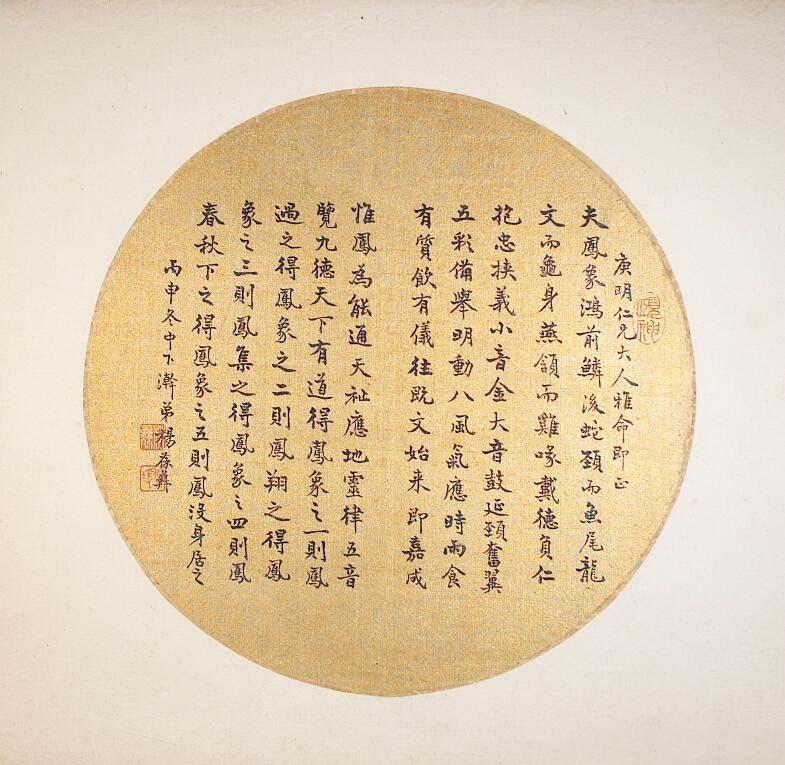 庚明仁兄大人雅命即正
夫鳳象鴻前鱗後蛇頸而魚尾龍
文而龜身燕頷而雞喙戴德負仁
抱忠挾義小音金大音鼓延頸奮翼
五彩備舉明動八風氣應時雨食
有質飲有儀往既文始来即嘉成
惟鳳為能通天祉應地靈律五音
覽九德天下有道得鳳象之一則鳳
過之得鳳象之二則鳳翔之得鳳
象之三則鳳集之得鳳象之四則鳳
春秋下之得鳳象之五則鳳沒身居之
丙申冬中下澣弟楊葆彝